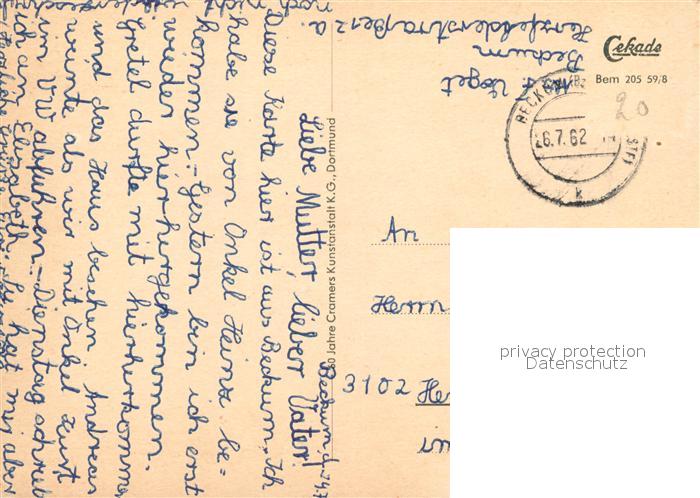 Beckum, d. 24.7
Liebe Mutter, lieber Vater!
Diese Karte hier ist aus Beckum. Ich
habe sie von Onkel Heinz be=
kommen. - Gestern bin ich erst
wieder hierhergekommen.
Gretel durfte mit hierherkommen
und das Haus besehen. Andreas
weinte als wir mit Onkel Kurt
im VW abfuhren. - Dienstag schrieb
ich an Elisabeth. Sie hat mir aber
noch nicht
60 Jahre Cramers Kunstanstalt K.G., Dortmund
Voget
Beckum
Hersfelderstraße 2 a.
Cekade
Bem 205 59/8
BECKUM (BZ
26.7.62
k
20
An
Herrn
3102 He
privacy protection
Datenschutz